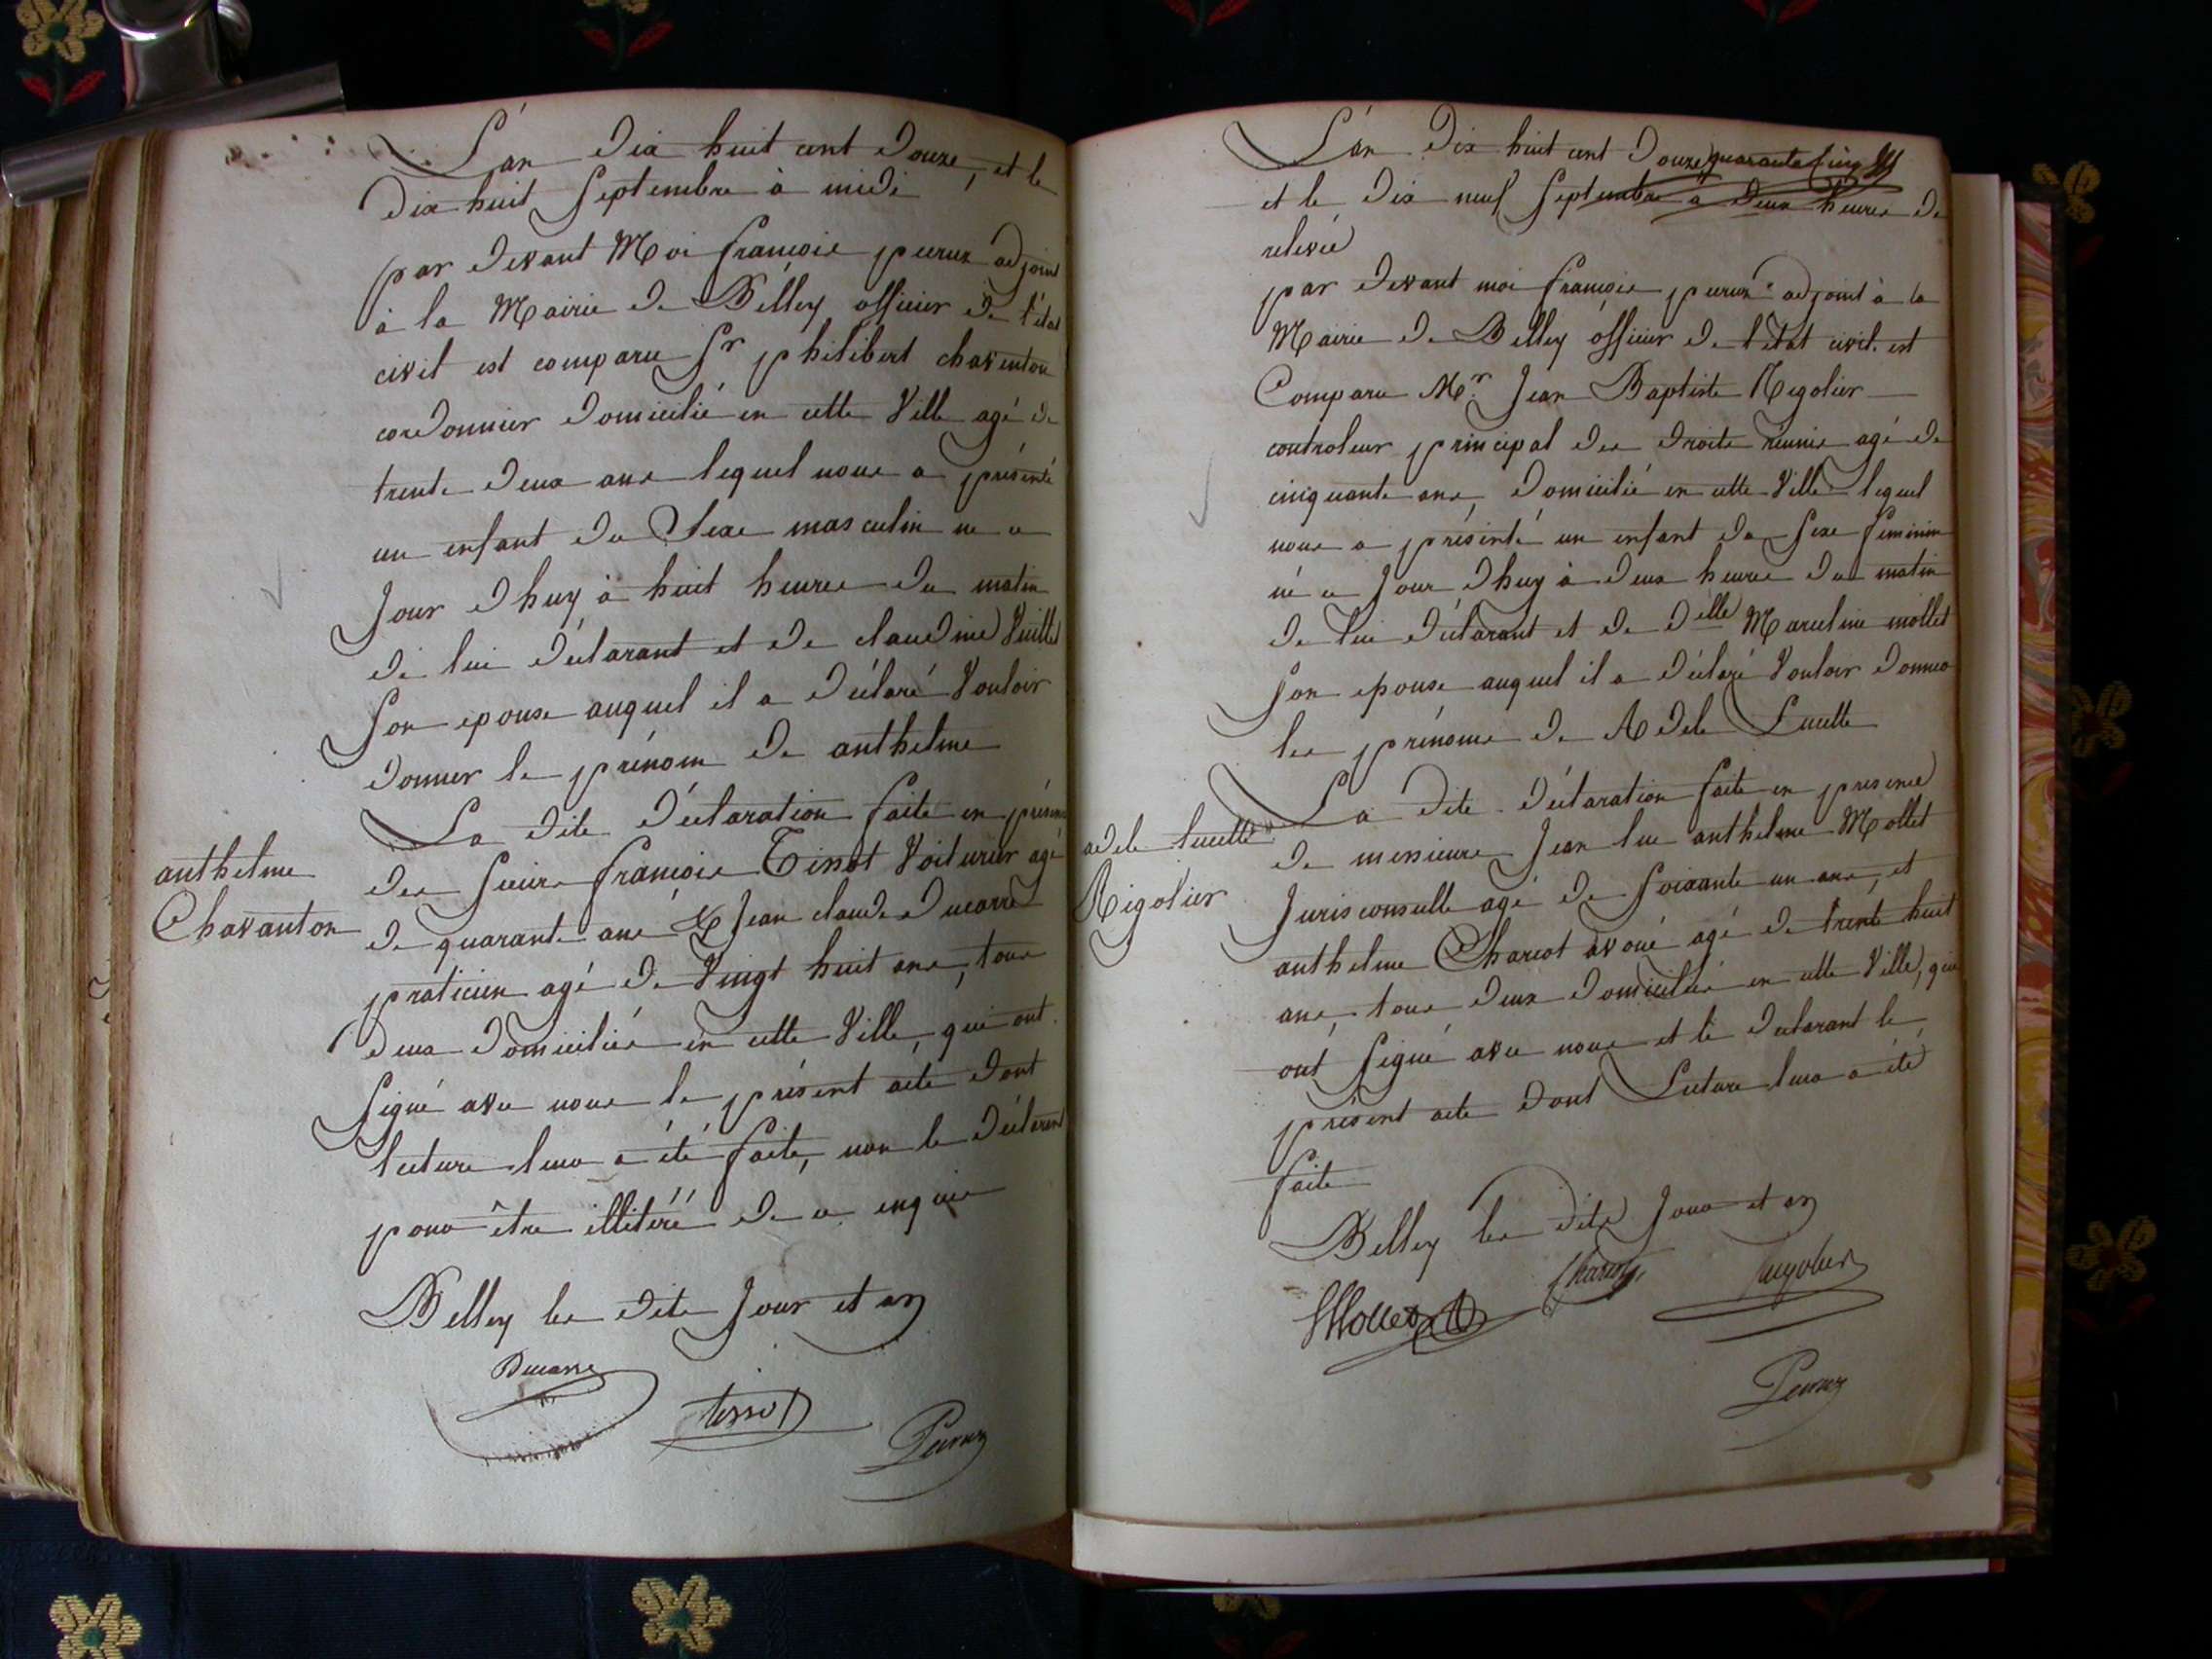 L'an Dix huit cent Douze, et le
Dix huit Septembre à midi
par devant Moi françois peruz adjoint
à la Mairie de Belley officier de l'état
civil est comparu Sr philibert chaventon
cordonnier Domicilié en cette Ville agé de
trente Deux ans lequel nous a présenté
un enfant du Sexe masculin né ce
Jour d'huy à huit heures du matin
de lui déclarant et de claudine
Son epouse auquel il a déclaré Vouloir
donner le prénom de anthelme
La dite Déclaration faite en présence
anthelme
Chavanton
des Sieurs françois Tissot Voiturier agé
de quarante ans & Jean claude Ducarre
praticien agé de Vingt huit ans, tous
deux Domiciliés en cette Ville, qui ont
Signé avec nous le présent acte dont
lecture leur a été faite, non le déclarant
pour être illitéré de ce enquis
Belley les dits Jour et an
Ducarre
tissot
Peruz
L'an Dix huit cent Douze quarante cinq
et le Dix neuf Septembre à Deux heures de
relevée
par devant moi françois peruz adjoint à la
Mairie de Belley officier de l'état civil est
Comparu Mr Jean Baptiste Rigolier
controleur principal des droits réunis agé de
cinquante ans, Domicilié en cette Ville lequel
nous a présenté un enfant du Sexe féminin
né ce Jour d'huy à deux heures du matin
de lui déclarant et de Delle Marceline mollet
Son epouse auquel il a déclaré Vouloir donner
les prénoms de Adele Lucette
La dite déclaration faite en présence
adele lucette
Rigolier
de messieurs Jean luc anthelme Mollet
Jurisconsulte agé de Soixante un ans, et
anthelme Charcot avoué agé de trente huit
ans, tous deux Domiciliés en cette Ville, qui
ont Signé avec nous et le déclarant le
présent acte dont Lecture leur a été
faite
Belley les dits Jour et an
Mollet
Charcot
Rigolier
Peruz